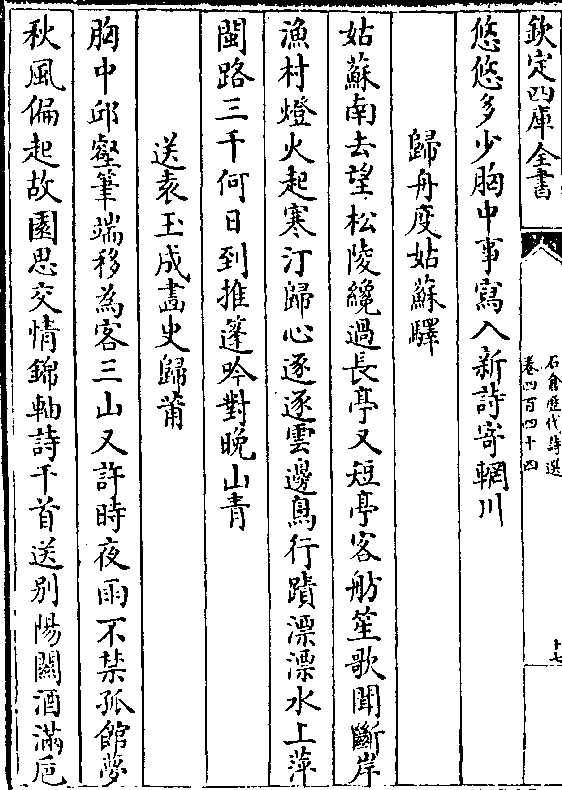 欽定四庫全書
石倉歷代詩選
卷四百四十四
十七
悠悠多少胸中事寫入新詩寄輞川
歸舟度姑蘇驛
姑蘇南去望松陵纔過長亭又短亭客舫笙歌聞斷岸
漁村燈火起寒汀歸心逐逐雲邊鳥行蹟漂漂水上萍
閩路三千何日到推篷吟對晚山青
送袁玉成畵史歸莆
胸中邱壑筆端移為客三山又許時夜雨不禁孤館夢
秋風偏起故園思交情錦軸詩千首送別陽關酒滿巵